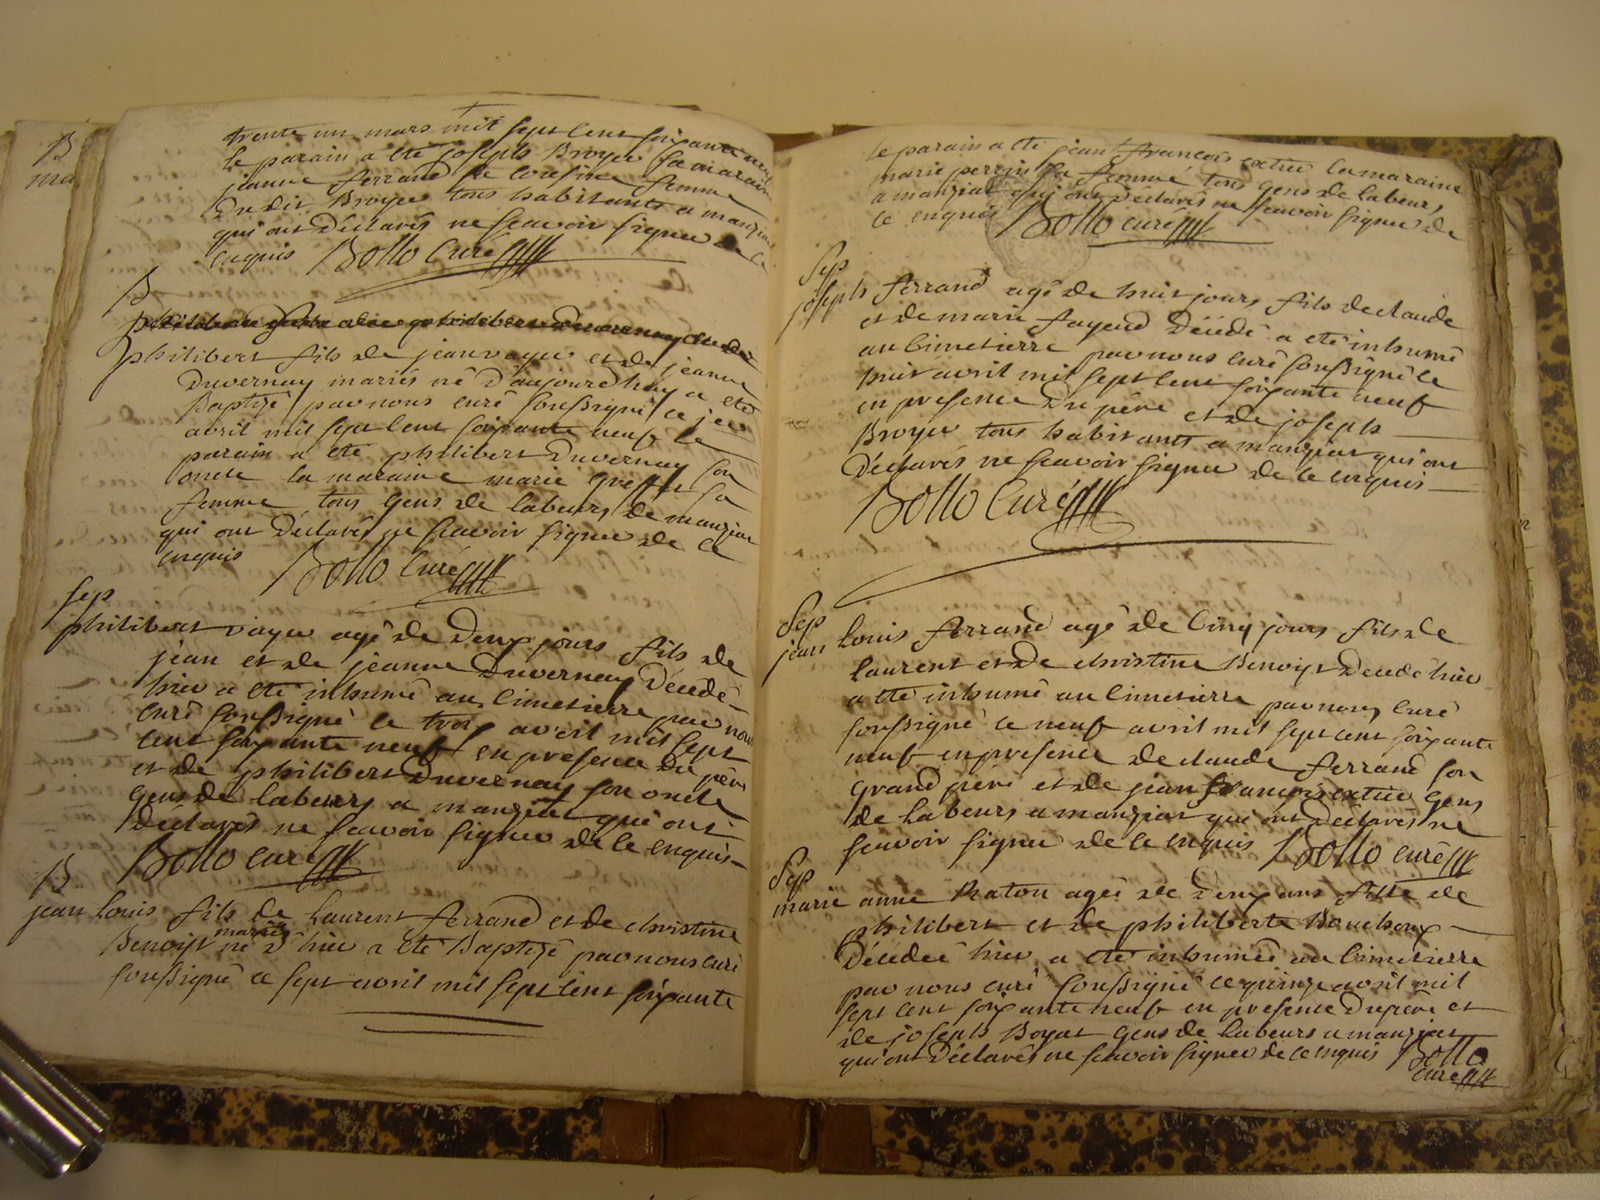 B
trente un mars mil sept cent soixante neuf
le parain a été joseph Broyer la maraine
jeanne ferrand
du dit Broyer tous habitants a manziat
qui ont déclarés ne scavoir signer de ce
enquis Bollo Curé
B
philibert fils de jean voyer et de jeanne
Duvernay mariés né d'aujourd'huy a eté
Baptisé par nous curé soussigné ce
avril mil sept cent soixante neuf le
parain a eté philibert Duvernay son
oncle la maraine marie sa
femme tous gens de labeurs de manziat
qui ont déclarés ne scavoir signer de ce
enquis Bollo Curé
Sep
philibert voyer agé de deux jours fils de
jean et de jeanne Duvernay décédé
hier a eté inhumé au cimetierre par nous
curé soussigné le trois avril mil sept
cent soixante neuf en presence du père
et de philibert Duvernay son oncle
gens de labeurs a manziat qui ont
déclarés ne scavoir signer de ce enquis
Bollo curé
B
jean Louis fils de Laurent ferrand et de christine
Benoist mariés né d'hier a eté Baptisé par nous curé
soussigné ce sept avril mil sept cent soixante
le parain a eté jean françois la maraine
marie perrin sa femme tous gens de labeurs
a manziat qui ont déclarés ne scavoir signer de
ce enquis Bollo curé
Sep
joseph ferrand agé de huit jours fils de claude
et de marie fayend décédé a eté inhumé
au cimetierre par nous curé soussigné le
huit avril mil sept cent soixante neuf
en presence du père et de joseph
Broyer tous habitants a manziat qui ont
déclarés ne scavoir signer de ce enquis
Bollo Curé
Sep
jean Louis ferrand agé de cinq jours fils de
Laurent et de christine Benoist décédé hier
a eté inhumé au cimetierre par nous curé
soussigné ce neuf avril mil sept cent soixante
neuf en presence de claude ferrand son
grand père et de jean françois gens
de labeurs a manziat qui ont déclarés ne
scavoir signer de ce enquis Bollo curé
Sep
marie anne Raton agée de deux ans fille de
philibert et de philiberte Bouchoux
décédée hier a eté inhumée au cimetierre
par nous curé soussigné ce quinze avril mil
sept cent soixante neuf en presence du père et
de joseph Boyat gens de labeurs a manziat
qui ont déclarés ne scavoir signer de ce enquis Bollo
curé